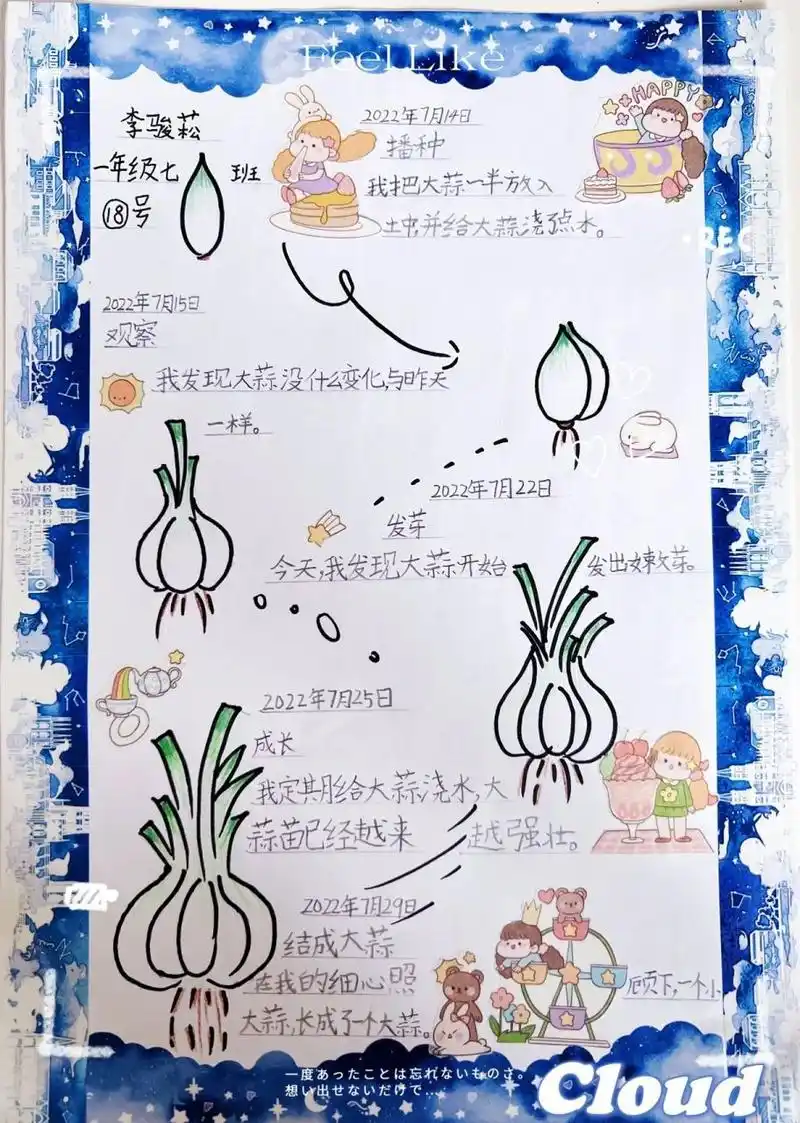 Feel Like
李骏菘
一年级七班
⑱号
2022年7月14日
播种
我把大蒜一半放入
土中,并给大蒜浇了点水。
HAPPY
REC
2022年7月15日
观察
我发现大蒜没什么变化,与昨天
一样。
2022年7月22日
发芽
今天,我发现大蒜开始发出嫩芽。
2022年7月25日
成长
我定期给大蒜浇水,大
蒜苗已经越来越强壮。
2022年7月29日
结成大蒜
在我的细心照顾下,一个小
大蒜,长成了一个大蒜。
一度あったことは忘れないものさ。
想い出せないだけで...
Cloud